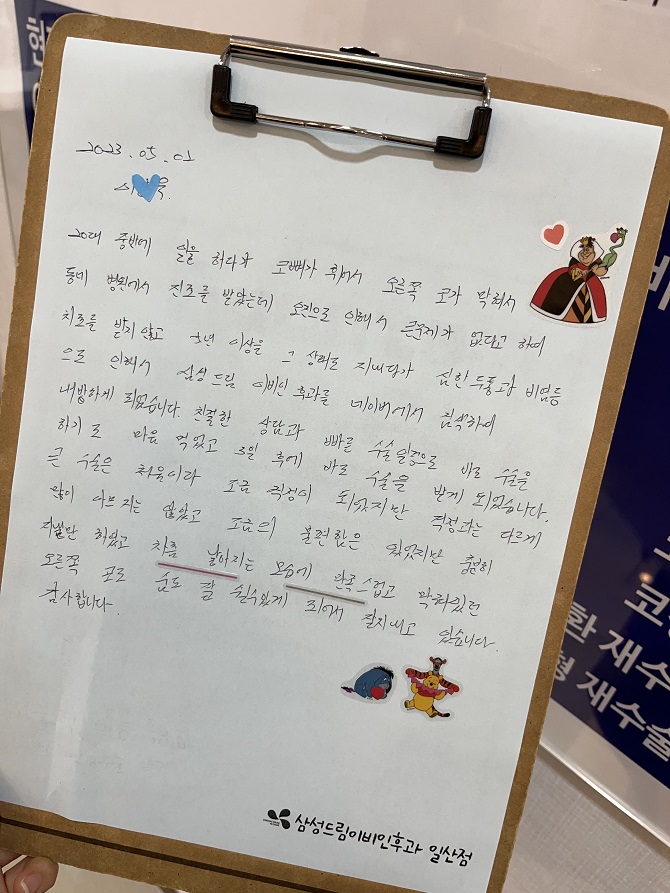 2023.05.02
이 욱.
20대 중반에 일을 하다가 코뼈가 휘어서 오른쪽 코가 막혀서
동네 병원에서 진료를 받았는데 오진으로 인해서 큰문제가 없다고 하여
치료를 받지 않고 5년 이상을 그 상태로 지내다가 심한 두통과 비염등
으로 인해서 삼성드림 이비인후과를 네이버에서 검색하여
내방하게 되었습니다. 친절한 상담과 빠른 수술일정으로 바로 수술을
하기로 마음 먹었고 3일 후에 바로 수술을 받게 되었습니다.
큰 수술은 처음이라 조금 걱정이 되었지만 걱정과는 다르게
많이 아프지는 않았고 조금의 불편함은 있었지만 충분히
지낼만 하였고 차츰 낳아지는 모습에 만족스럽고 막혀있던
오른쪽 코로 숨도 잘 쉴수있게 되어서 잘지내고 있습니다.
감사합니다.
삼성드림이비인후과 일산점
비
코
환 재수
형 재수술